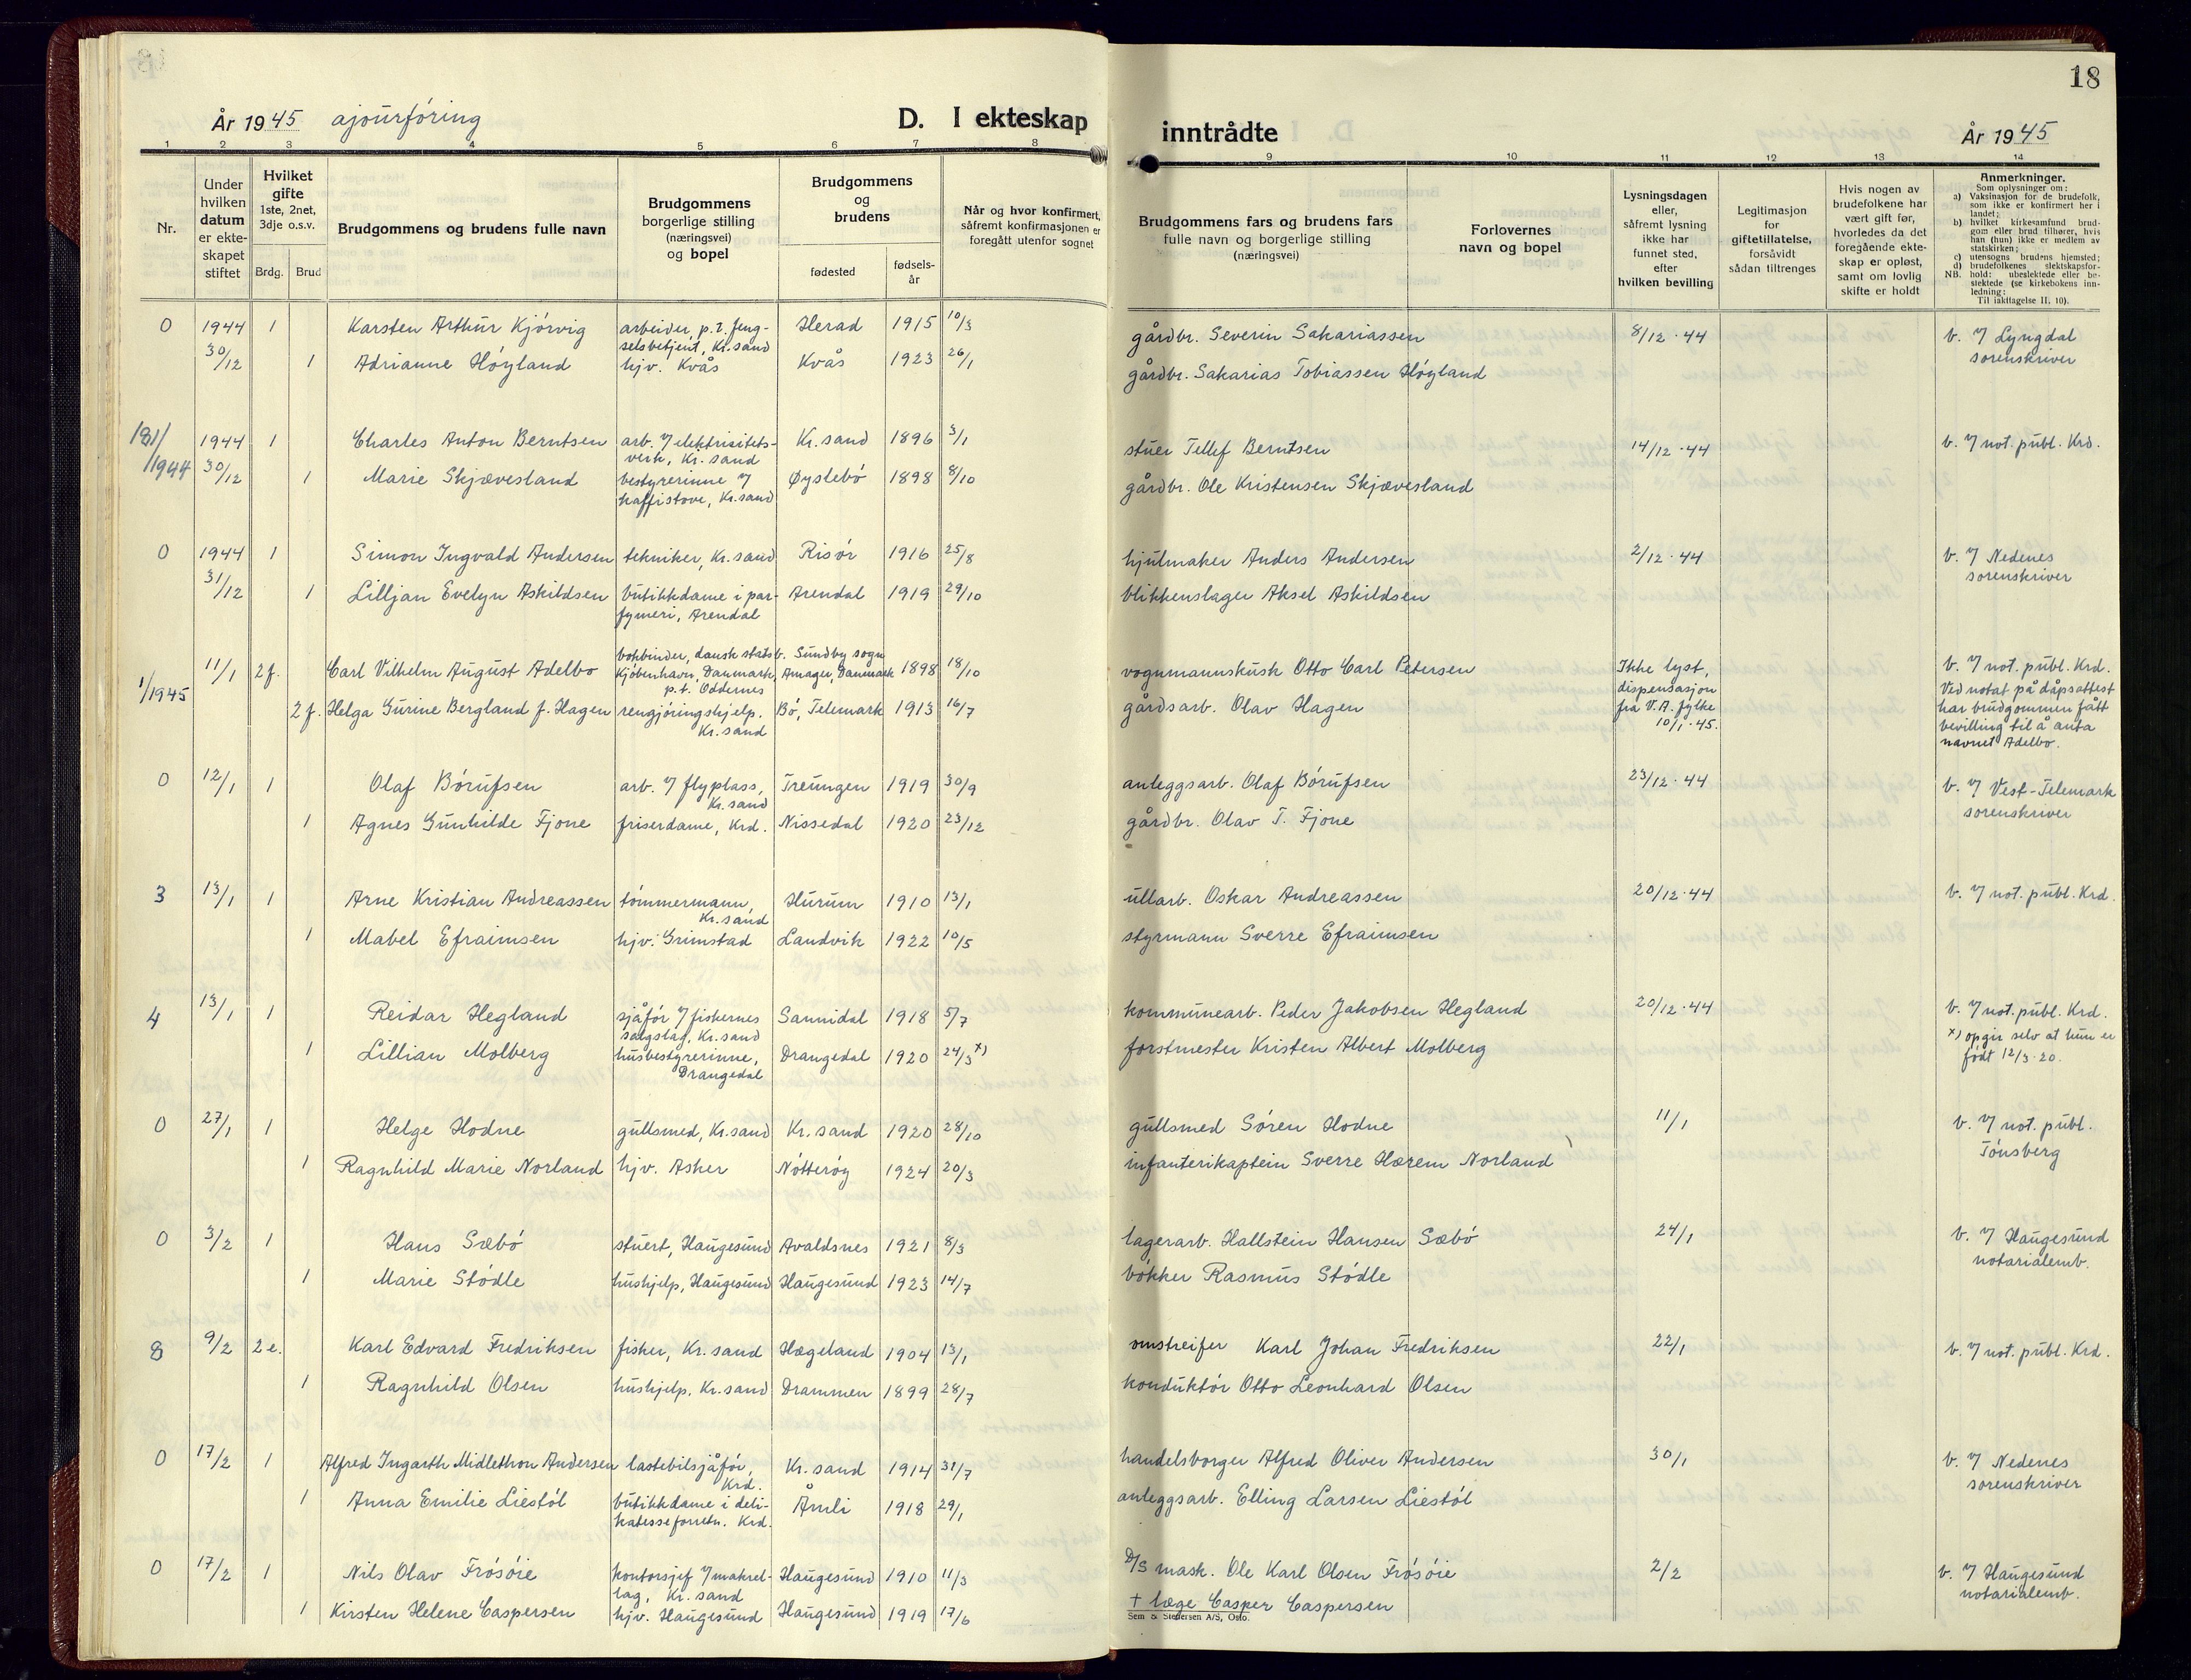 18
År 1945 ajourføring
D. I ekteskap inntrådte
År 1945
1 2 3 4 5 6 7 8 9 10 11 12 13 14
Nr.
Under hvilken datum er ekteskapet stiftet
Hvilket gifte 1ste, 2net, 3dje o.s.v.
Brdg. Brud
Brudgommens og brudens fulle navn
Brudgommens borgerlige stilling (næringsvei) og bopel
Brudgommens og brudens
fødested
fødselsår
Når og hvor konfirmert, såfremt konfirmasjonen er foregått utenfor sognet
Brudgommens fars og brudens fars fulle navn og borgerlige stilling (næringsvei)
Forlovernes navn og bopel
Lysningsdagen eller, såfremt lysning ikke har funnet sted, efter hvilken bevilling
Legitimasjon for giftetillatelse, forsåvidt sådan tiltrenges
Hvis nogen av brudefolkene har vært gift før, hvorledes da det foregående ekteskap er opløst, samt om lovlig skifte er holdt
Anmerkninger.
Som oplysninger om:
a) Vaksinasjon for de brudefolk, som ikke er konfirmert her i landet;
b) hvilket kirkesamfund brudgom eller brud tilhører, hvis han (hun) ikke er medlem av statskirken;
c) utensogns brudens hjemsted;
d) brudefolkenes slektskapsforhold: ubeslektede eller beslektede (se kirkebokens innledning:
NB.
Til iakttagelse II, 10).
0 1944 30/12 1 Karsten Arthur Kjørvig arbeider, p.t. fengselsbetjent, Kr.sand Herad 1915 10/3 gårdbr. Severin Sakariassen 8/12·44 b. 7 Lyngdal sorenskriver
1 Adrianne Høyland hjv. Kvås Kvås 1923 26/1 gårdbr. Sakarias Tobiassen Høyland
181/1944 1944 30/12 1 Charles Anton Berntsen arb. 7 elektrisitetsverk, Kr.sand Kr.sand 1896 3/1 stuer Tellef Berntsen 14/12·44 b. 7 not. publ. Krd.
1 Marie Skjævesland bestyrerinne 7 kaffistove, Kr.sand Øyslebø 1898 8/10 gårdbr. Ole Kristensen Skjævesland
0 1944 31/12 1 Simon Ingvald Andersen tekniker, Kr.sand Risør 1916 25/8 hjulmaker Anders Andersen 2/12·44 b. 7 Nedenes sorenskriver
1 Lilljan Evelyn Askildsen butikkdame i parfymeri, Arendal Arendal 1919 29/10 blikkenslager Aksel Askildsen
1/1945 11/1 2 f. Carl Vilhelm August Adelbo bokbinder, dansk statsb. Kjøbenhavn, Danmark, p.t. Oddernes Sundby sogn Amager, Danmark 1898 18/10 vognmannskusk Otto Carl Petersen Ikke lyst, dispensasjon fra V.A. fylke 10/1·45. b. 7 not. publ. Krd. Ved notat på dåpsattest har brudgommen fått bevilling til å anta navnet Adelbo.
2 f. Helga Gurine Bergland f. Hagen rengjøringshjelp. Kr.sand Bø, Telemark 1913 16/7 gårdsarb. Olav Hagen
0 12/1 1 Olaf Børufsen arb. 7 flyplass, Kr.sand Treungen 1919 30/9 anleggsarb. Olaf Børufsen 23/12·44 b. 7 Vest-Telemark sorenskriver
1 Agnes Gunhilde Fjone friserdame, Krd. Nissedal 1920 23/12 gårdbr. Olav T. Fjone
3 13/1 1 Arne Kristian Andreassen tømmermann, Kr.sand Hurum 1910 13/1 ullarb. Oskar Andreassen 20/12·44 b. 7 not. publ. Krd.
1 Mabel Efraimsen hjv. Grimstad Landvik 1922 10/5 styrmann Sverre Efraimsen
4 13/1 1 Reidar Hegland sjåfør 7 fiskernes salgslag, Kr.sand Sannidal 1918 5/7 kommunearb. Peder Jakobsen Hegland 20/12·44 b. 7 not. publ. Krd. x) opgir selv at hun er født 12/3·20.
1 Lillian Molberg husbestyrerinne, Drangedal Drangedal 1920 24/3 x) forstmester Kristen Albert Molberg
0 27/1 1 Helge Hodne gullsmed, Kr.sand Kr.sand 1920 28/10 gullsmed Søren Hodne 11/1 b. 7 not. publ. Tønsberg
1 Ragnhild Marie Norland hjv. Asker Nøtterøy 1924 20/3 infanterikaptein Sverre Hærem Norland
0 3/2 1 Hans Sæbø stuert, Haugesund Avaldsnes 1921 8/3 lagerarb. Hallstein Hansen Sæbø 24/1 b. 7 Haugesund notarialemb.
1 Marie Stødle hushjelp, Haugesund Haugesund 1923 14/7 bøkker Rasmus Stødle
8 9/2 2 e. Karl Edvard Fredriksen fisker, Kr.sand Hægeland 1904 13/1 omstreifer Karl Johan Fredriksen 22/1 b. 7 not. publ. Krd.
1 Ragnhild Olsen hushjelp, Kr.sand Drammen 1899 28/7 konduktør Otto Leonhard Olsen
0 17/2 1 Alfred Ingarth Midlethon Andersen lastebilsjåfør, Krd. Kr.sand 1914 31/7 handelsborger Alfred Oliver Andersen 30/1 b. 7 Nedenes sorenskriver
1 Anna Emilie Liestøl butikkdame i delikatesseforretn. Krd. Åmli 1918 29/1 anleggsarb. Elling Larsen Liestøl
0 17/2 1 Nils Olav Frøsøie kontorsjef 7 makrellag, Kr.sand Haugesund 1910 11/3 D/S mask. Ole Karl Olsen Frøsøie 2/2 b. 7 Haugesund notarialemb.
1 Kirsten Helene Caspersen hjv. Haugesund Haugesund 1919 17/6 + læge Casper Caspersen
Sem & Stenersen A/S, Oslo.